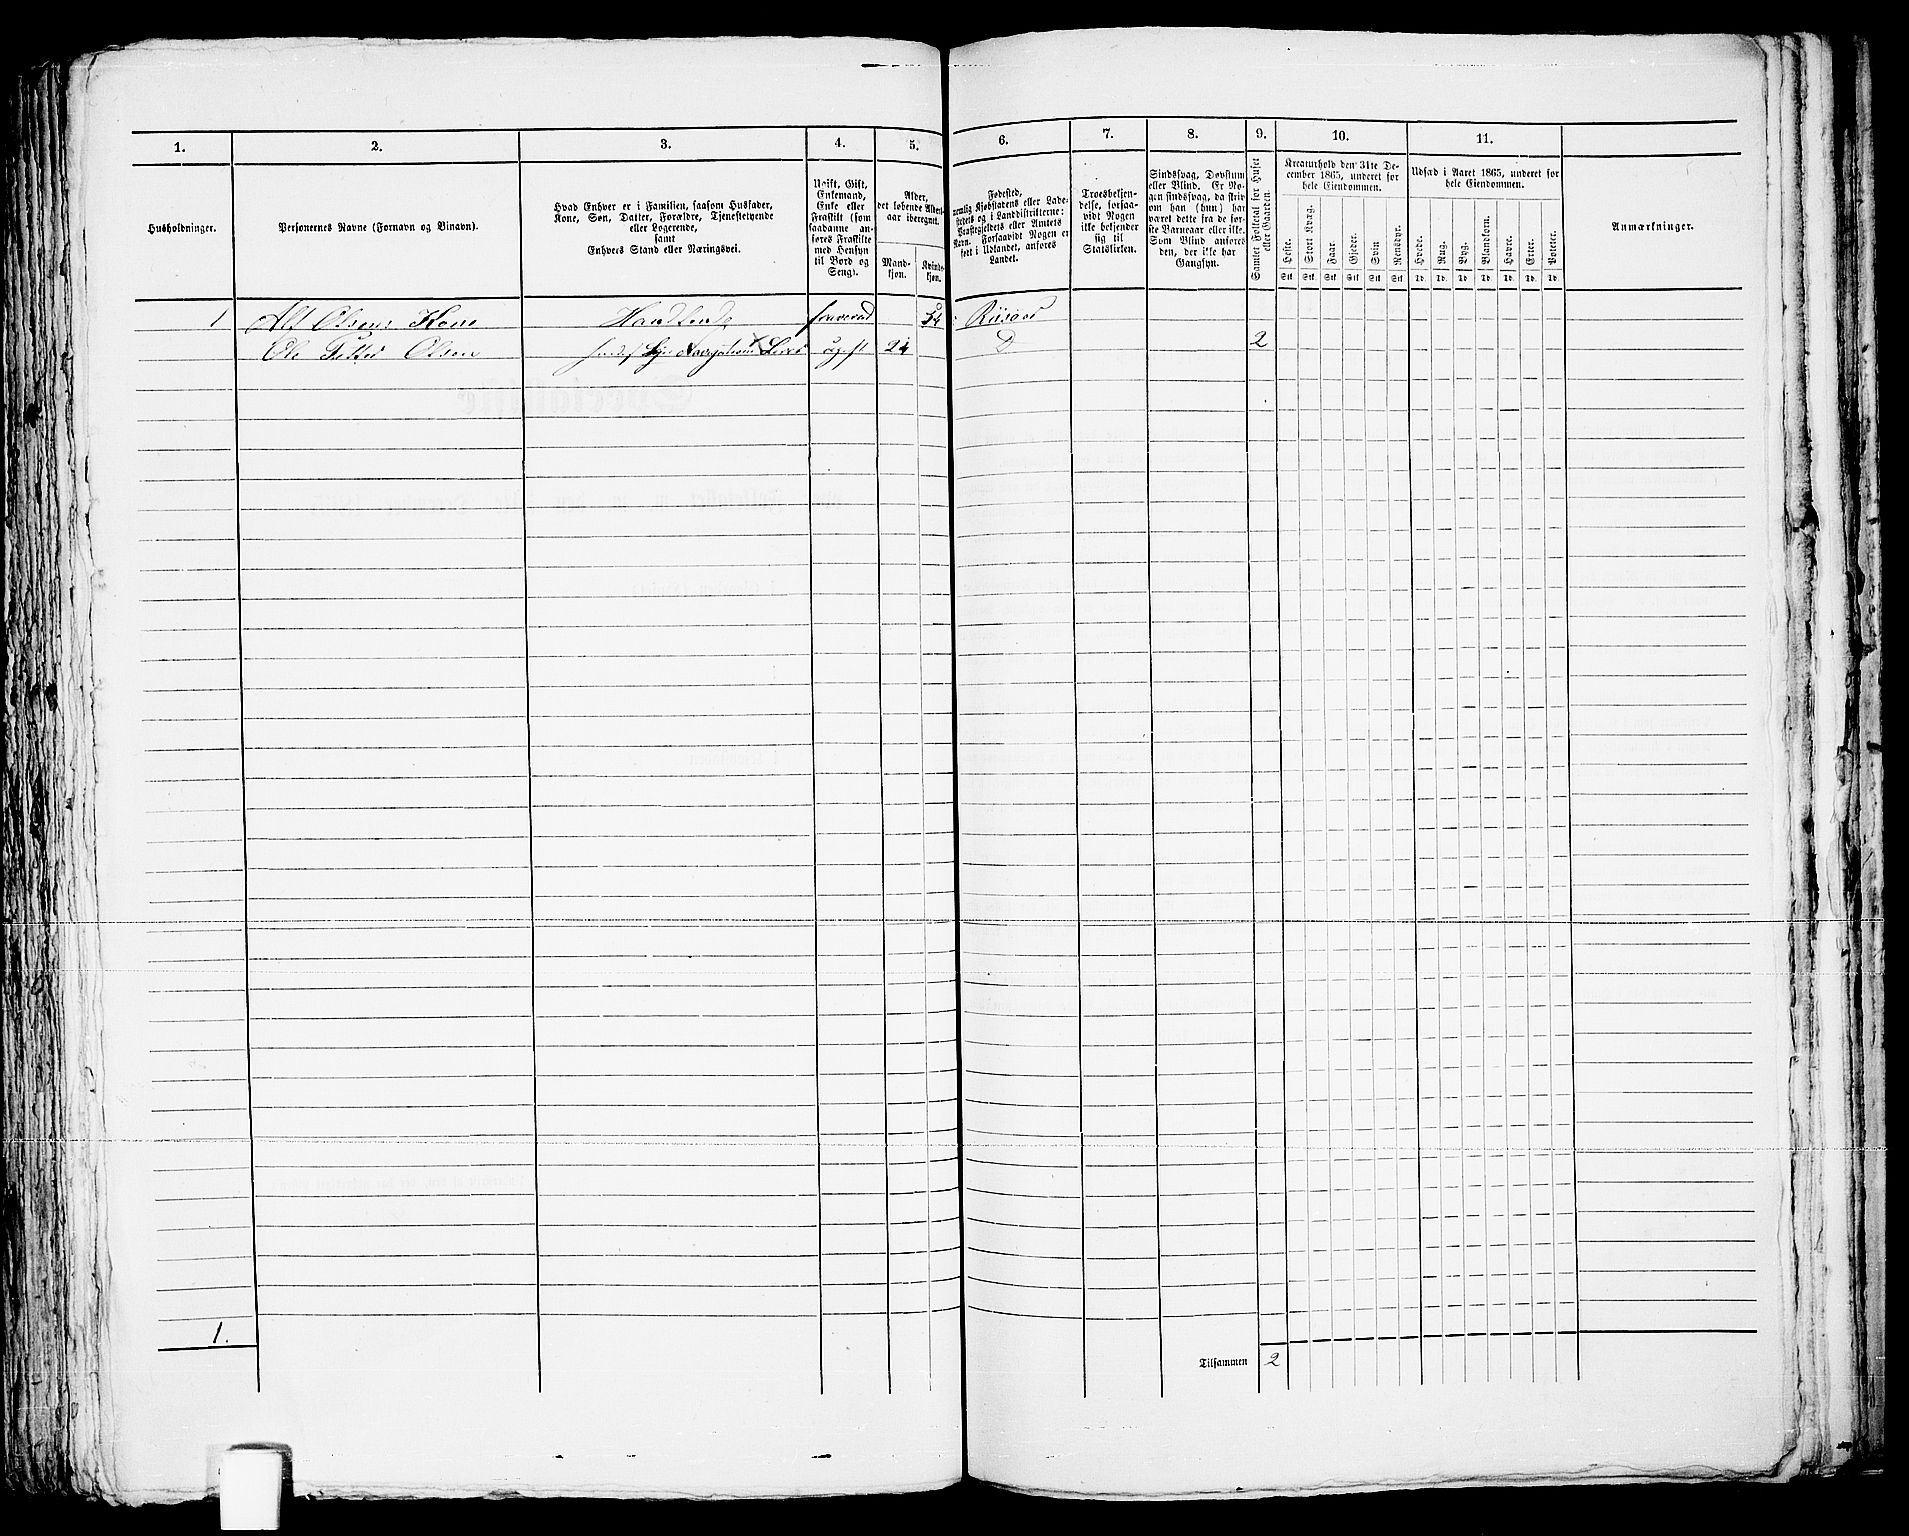 1. 2. 3. 4. 5. 6. 7. 8. 9. 10. 11.
Husholdninger.
Personernes Navne (Fornavn og Binavn).
Hvad Enhver er i Familien, saasom Husfader,
Kone, Søn, Datter, Forældre, Tjenestetyende
eller Logerende,
samt
Enhvers Stand eller Næringsvei.
Ugift, Gift,
Enkemand,
Enke eller
Fraskilt (som
saadanne an-
føres Fraskilte
med Hensyn
til Bord og
Seng).
Alder,
det løbende Alders-
aar iberegnet.
Mand-
kjøn.
Kvind-
kjøn.
Fødested,
nemlig Kjøbstadens eller Lade-
stedets og i Landdistrikterne:
Præstegjeldets eller Amtets
Navn. Forsaavidt Nogen er
født i Udlandet, anføres
Landet.
Troesbekjen-
delse, forsaa-
vidt Nogen
ikke bekjender
sig til
Statskirken.
Sindssvag, Døvstum
eller Blind. Er No-
gen sindssvag, da skriv
om han (hun) har
været dette fra de før-
ste Barneaar eller ikke.
Som Blind anføres
den, der ikke har
Gangsyn.
Samlet Folketal for Huset
eller Gaarden.
Kreaturhold den 31te De-
cember 1865, underet for
hele Eiendommen.
Heste. Stort Kvæg. Faar. Gjeder. Svin Rensdyr.
Stk Stk Stk Stk Stk Stk
Udsæd i Aaret 1865, underet for
hele Eiendommen.
Hvede. Rug. Byg. Blandkorn. Havre. Erter. Poteter.
Td. Td. Td. Td. Td. Td. Td.
Anmærkninger.
1 Alf Olsens Kone Handlende 54 Risøer
Ole Olsen ugift 24 D 2
1.
Tilsammen 2